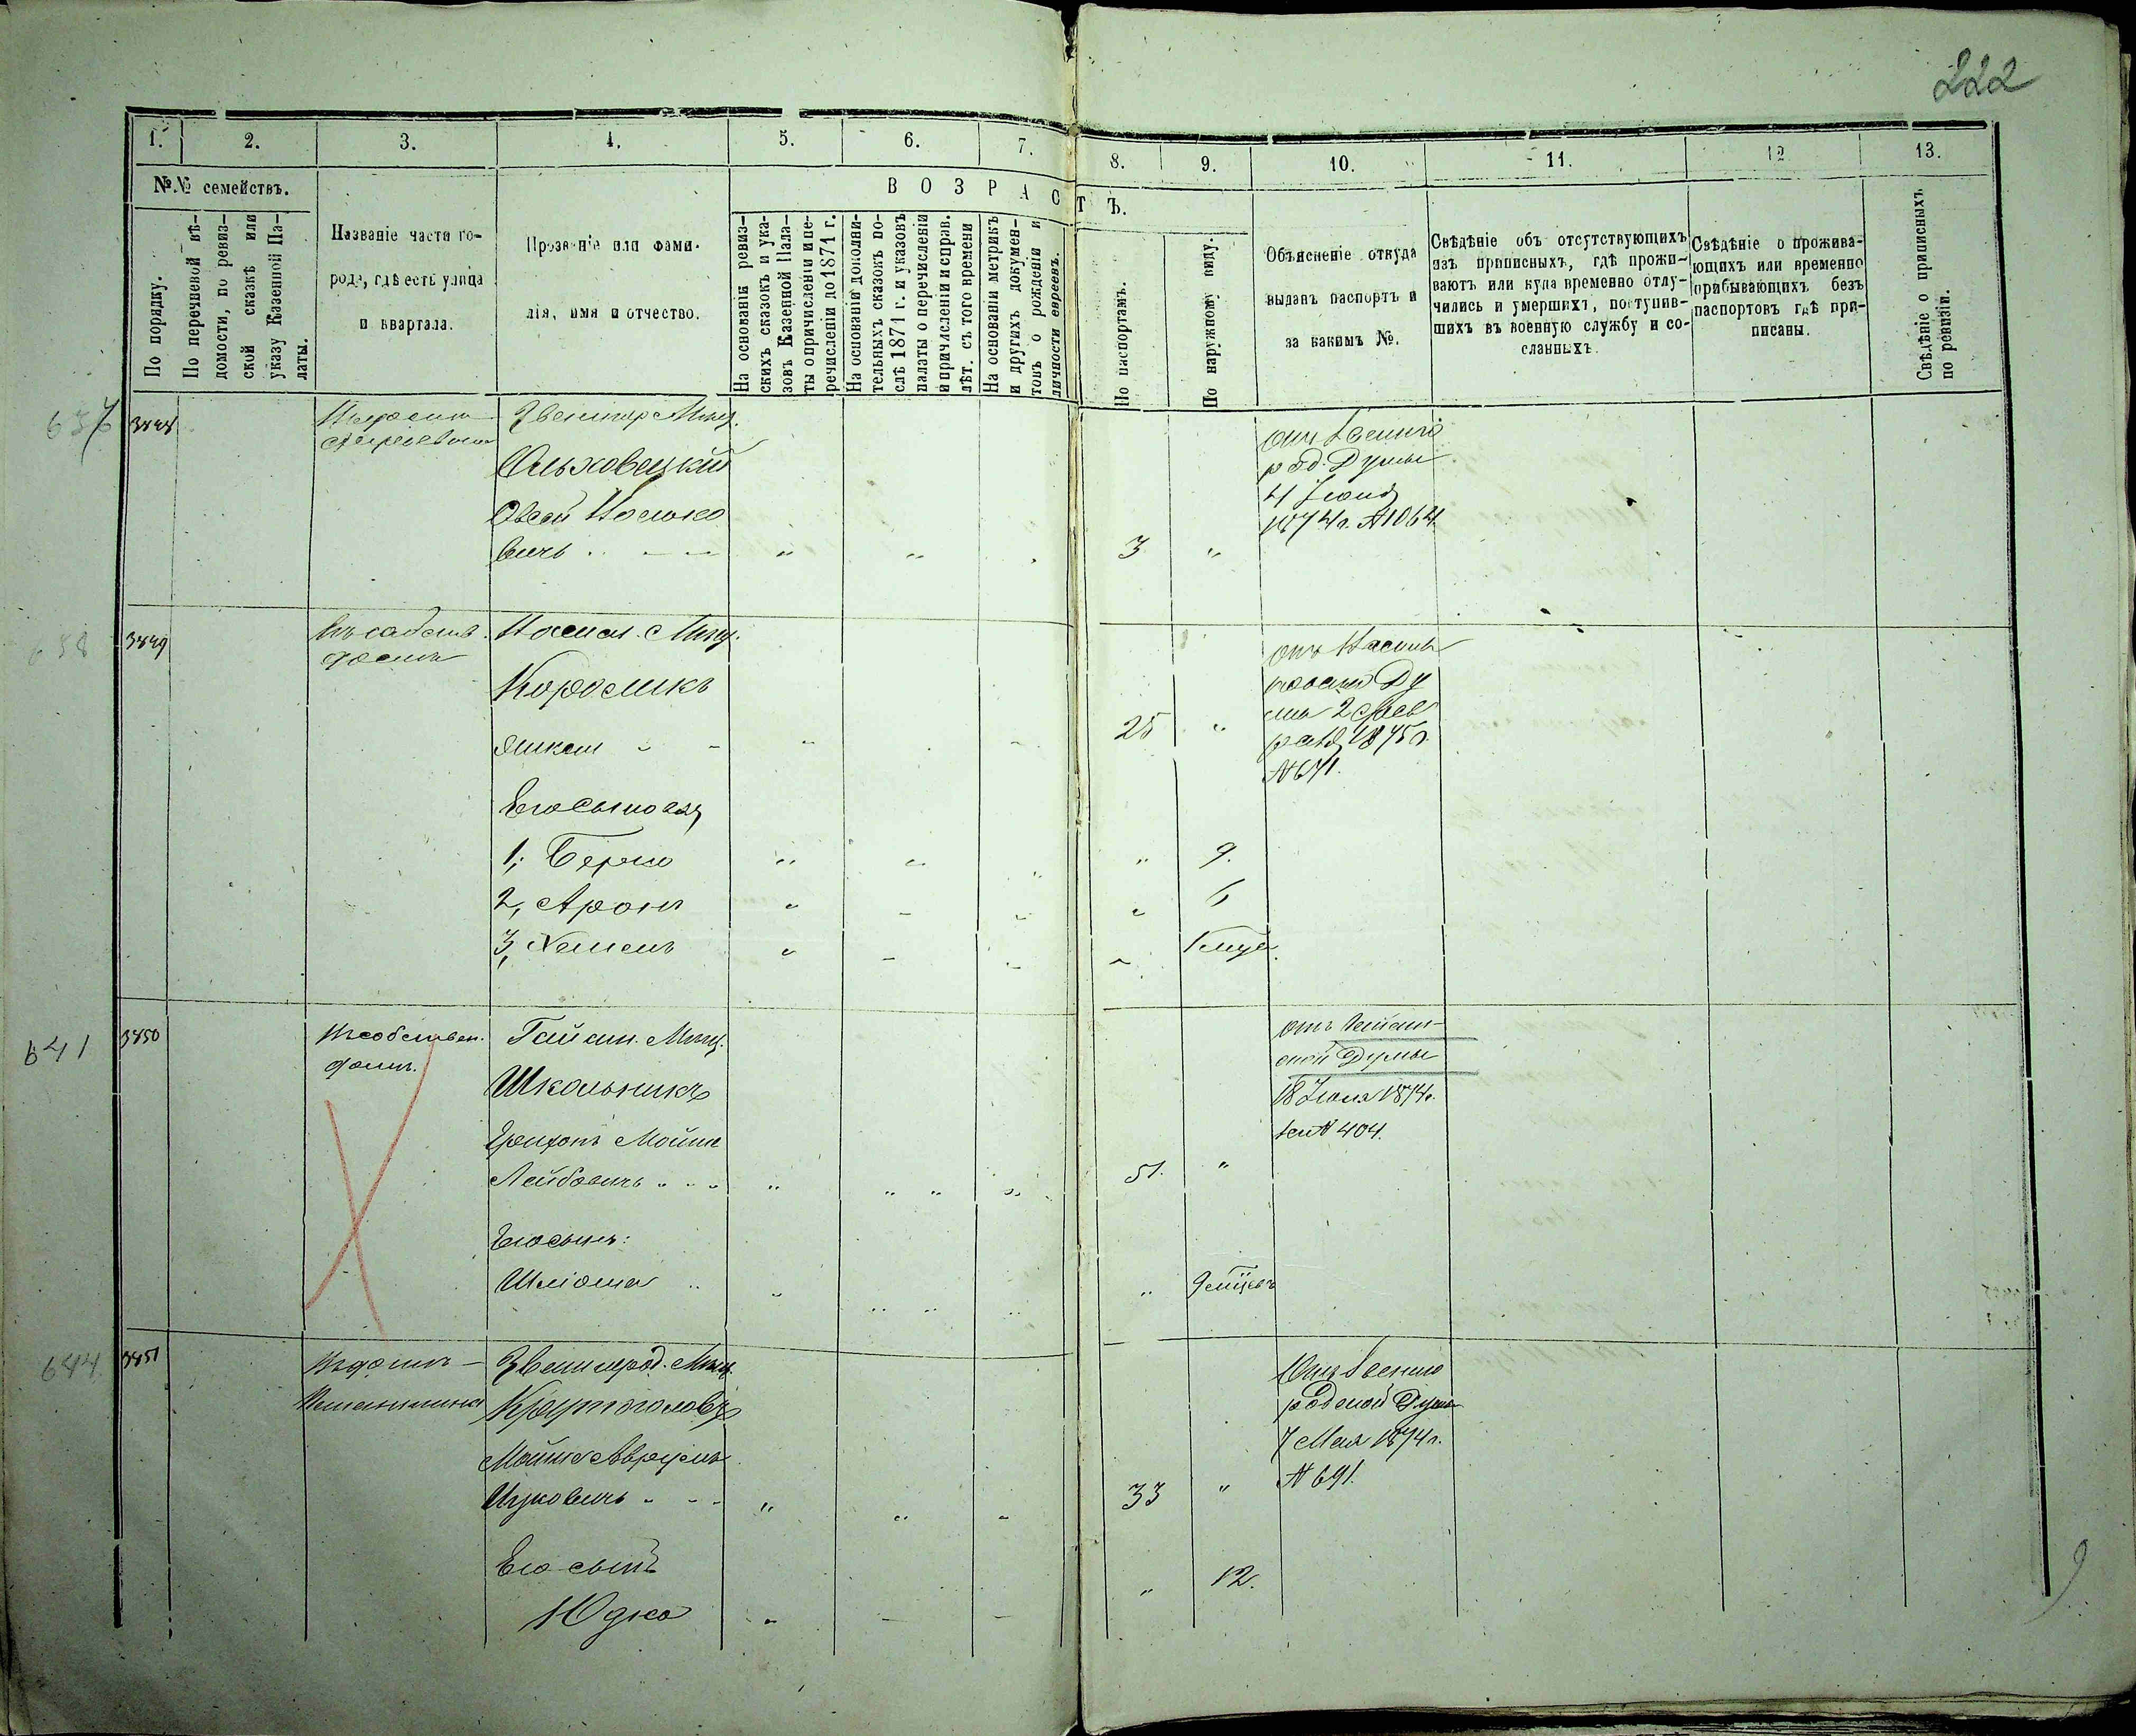 222
1. 2. 3. 4. 5. 6. 7. 8. 9. 10. 11. 12 13.
№№ семействъ.
ВОЗРАСТЪ.
По порядку.
По перечневой вѣ-
домости, по ревиз-
ской сказкѣ или
указу Казенной Па-
латы.
Названіе части го-
рода, гдѣ есть улица
и квартала.
Прозваніе или фами-
лія, имя и отчество.
На основаніи ревиз-
скихъ сказокъ и ука-
зовъ Казенной Пала-
ты о причисленіи и пе-
речисленіи до 1871 г.
На основаніи дополни-
тельныхъ сказокъ по-
слѣ 1871 г. и указовъ
палаты о перечисленіи
и причисленіи и справ.
лѣт. съ того времени
На основаніи метрикъ
и другихъ докумен-
товъ о рожденіи и
личности евреевъ.
По паспортамъ.
По наружному виду.
Объясненіе откуда
выданъ паспортъ и
за какимъ №.
Свѣдѣніе объ отсутствующихъ
изъ приписныхъ, гдѣ прожи-
ваютъ или куда временно отлу-
чились и умершихъ, поступив-
шихъ въ военную службу и со-
сланныхъ.
Свѣдѣніе о прожива-
ющихъ или временно
прибывающихъ безъ
паспортовъ гдѣ при-
писаны.
Свѣдѣніе о приписныхъ
по ревизіи.
3448
Ольховецкій
Овсей Носько
вичъ
3 "
род. Думы
4 Іюня
1874г. №1064.
638 3449
домѣ
Мѣщ.
Его сыновья
1, Берко " 9.
2, Аронъ " 6
3,
25 "
Ду
мы 2 Фев
раля 1875г.
№671.
641 3450
Въ собствен.
домѣ.
Гайсин. Мѣщ.
Школьникъ
Мошко
Лейбовичъ
51. "
Его сынъ:
" 9 мѣсец
отъ Гайсин-
ской Думы
18 Іюня 1874г.
за № 404.
644 3451
Въ домѣ
Звенигород. Мѣщ.
Крутоголовъ
Мошко Аврумъ
Ицковичъ
33 "
Его сынъ
Юдко
" 12.
Отъ Звениго
родской Думы
7 Мая 1874г.
№ 691.